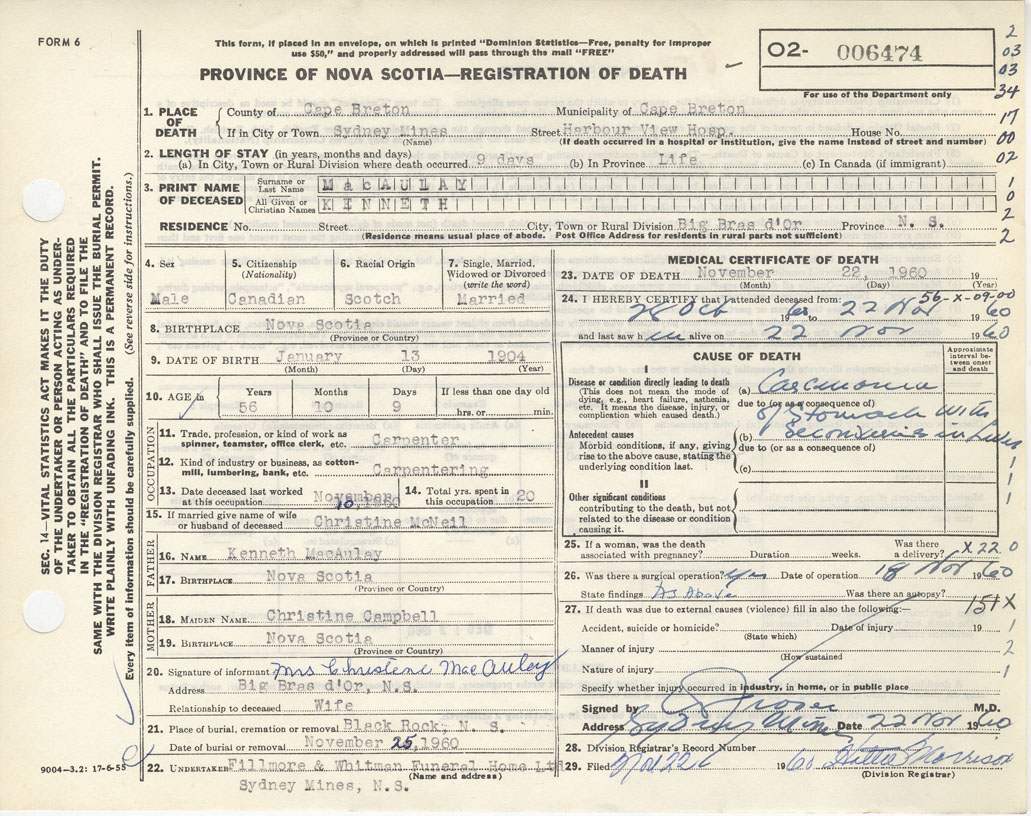 FORM 6
This form, if placed in an envelope, on which is printed "Dominion Statistics—Free, penalty for improper
use $50," and properly addressed will pass through the mail "FREE"
PROVINCE OF NOVA SCOTIA—REGISTRATION OF DEATH
O2- 006474
For use of the Department only
2
03
03
34
17
00
02
1
0
2
2
1. PLACE OF DEATH
County of Cape Breton Municipality of Cape Breton
If in City or Town Sydney Mines Street Harbour View Hosp. House No.
(Name) (If death occurred in a hospital or institution, give the name instead of street and number)
2. LENGTH OF STAY (in years, months and days)
(a) In City, Town or Rural Division where death occurred 9 days (b) In Province Life (c) In Canada (if immigrant)
3. PRINT NAME OF DECEASED
Surname or Last Name MacAULAY
All Given or Christian Names KENNETH
RESIDENCE No. Street City, Town or Rural Division Big Bras d'Or Province N. S.
(Residence means usual place of abode. Post Office Address for residents in rural parts not sufficient)
4. Sex Male
5. Citizenship (Nationality) Canadian
6. Racial Origin Scotch
7. Single, Married, Widowed or Divorced (write the word) Married
8. BIRTHPLACE Nova Scotia
(Province or Country)
9. DATE OF BIRTH January 13 1904
(Month) (Day) (Year)
10. AGE in Years Months Days If less than one day old
56 10 9 hrs. or min.
OCCUPATION
11. Trade, profession, or kind of work as
spinner, teamster, office clerk, etc. Carpenter
12. Kind of industry or business, as cotton-
mill, lumbering, bank, etc. Carpentering
13. Date deceased last worked
at this occupation November 10, 1960
14. Total yrs. spent in
this occupation 20
15. If married give name of wife
or husband of deceased Christine McNeil
FATHER
16. NAME Kenneth MacAulay
17. BIRTHPLACE Nova Scotia
(Province or Country)
MOTHER
18. MAIDEN NAME Christine Campbell
19. BIRTHPLACE Nova Scotia
(Province or Country)
20. Signature of informant Mrs Christene MacAuley
Address Big Bras d'Or, N.S.
Relationship to deceased Wife
21. Place of burial, cremation or removal Black Rock, N. S.
Date of burial or removal November 25, 1960
22. UNDERTAKER Fillmore & Whitman Funeral Home Ltd
(Name and address)
Sydney Mines, N.S.
MEDICAL CERTIFICATE OF DEATH
23. DATE OF DEATH November 22, 1960 19
(Month) (Day) (Year)
56-X-09-00
24. I HEREBY CERTIFY that I attended deceased from:
28 Oct 1960 to 22 Nov 1960
and last saw him alive on 22 Nov 1960
CAUSE OF DEATH
Approximate interval between onset and death
I
Disease or condition directly leading to death
(This does not mean the mode of
dying, e.g., heart failure, asthenia,
etc. It means the disease, injury, or
complication which caused death.)
(a) Carcinoma
due to (or as a consequence of)
of Stomach with
Antecedent causes
Morbid conditions, if any, giving
rise to the above cause, stating the
underlying condition last.
(b) secondaries in
due to (or as a consequence of)
(c)
II
Other significant conditions
contributing to the death, but not
related to the disease or condition
causing it.
1
1
1
25. If a woman, was the death
associated with pregnancy? Duration weeks. Was there a delivery?
X22 0
26. Was there a surgical operation? yes Date of operation 18 Nov 1960
State findings As Above Was there an autopsy?
151X
27. If death was due to external causes (violence) fill in also the following:—
Accident, suicide or homicide? Date of injury 19 1
(State which)
Manner of injury 2
(How sustained)
Nature of injury 1
Specify whether injury occurred in industry, in home, or in public place
Signed by M.D.
Address Sydney Mines Date 22 Nov 1960
28. Division Registrar's Record Number
29. Filed Nov 22 1960 Hattie Morrison
(Division Registrar)
SEC. 14—VITAL STATISTICS ACT MAKES IT THE DUTY
OF THE UNDERTAKER OR PERSON ACTING AS UNDER-
TAKER TO OBTAIN ALL THE PARTICULARS REQUIRED
IN THE "REGISTRATION OF DEATH" AND TO FILE THE
SAME WITH THE DIVISION REGISTRAR WHO SHALL ISSUE THE BURIAL PERMIT.
WRITE PLAINLY WITH UNFADING INK. THIS IS A PERMANENT RECORD.
Every item of information should be carefully supplied. (See reverse side for instructions.)
9004-3.2: 17-6-55